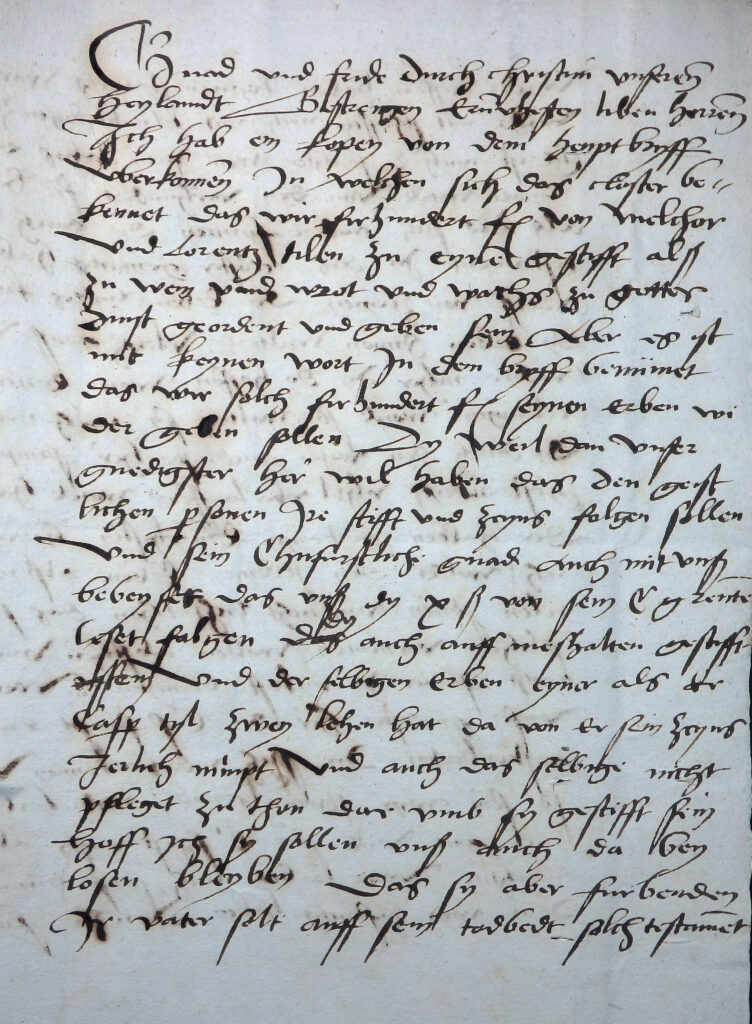 Gnad und fride durch christum unseren
Heylandt Gestrengen Ernvhesten liben herren
Ich hab ein kopey von dem heuptbryff
uberkommen In welchen sich das closter be-
kennet das wir firhundert fl von Melchor
und Lorentz tilen zu eyner gestifft als
zu wein und brot und wachs zu gottes
dinst geordent und geben sein Aber es ist
mit keynen wort In dem bryff benümet
das wir solch firhundert fl seynen erben wi
der geben sollen Dy weil dan unser
gnedigster her wil haben das den geist
lichen personen Ire stifft und zcyns folgen sollen
Und sein Churfurstliche gnad auch mit unß
das unß dy x ß von sein C g rente
leset folgen dy auch auff meshalten gestifft
Und der selbigen erben eyner als er
Casp tyl zwey lehen hat da von er sein zcyns
Jerlich nimpt Und auch das selbige nicht
pfleget zu thon dar umb sy gestifft sein
Hoff ich sy sollen unß auch da bey
losen bleyben Das sy aber furbenden
Ir vater solt auff sein todbedt solch testament